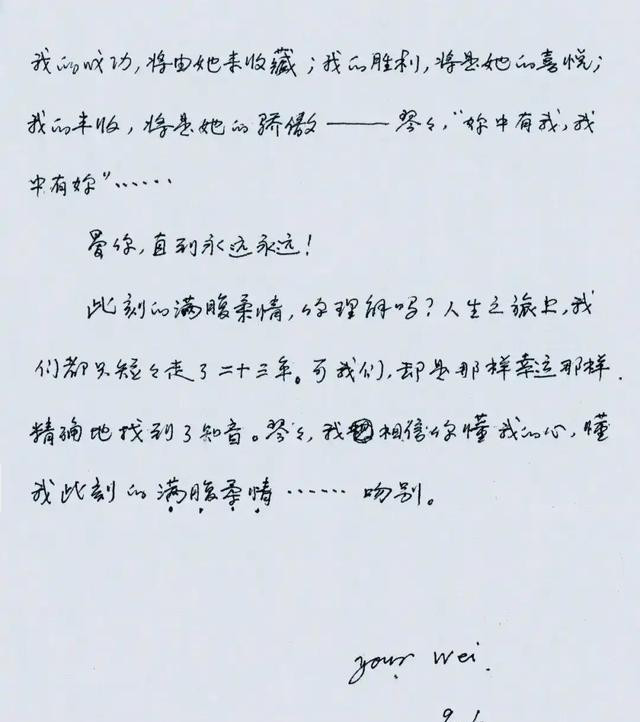 我的成功，将由她来收藏；我的胜利，将是她的喜悦；
我的丰收，将是她的骄傲——琴々，“妳中有我，我
中有妳”……
爱你，直到永远永远！
此刻的满腹柔情，你理解吗？人生之旅上，我
们都只短々走了二十三年。可我们，却是那样幸运那样
精确地找到了知音。琴々，我相信你懂我的心，懂
我此刻的满腹柔情……吻别。
your wei.